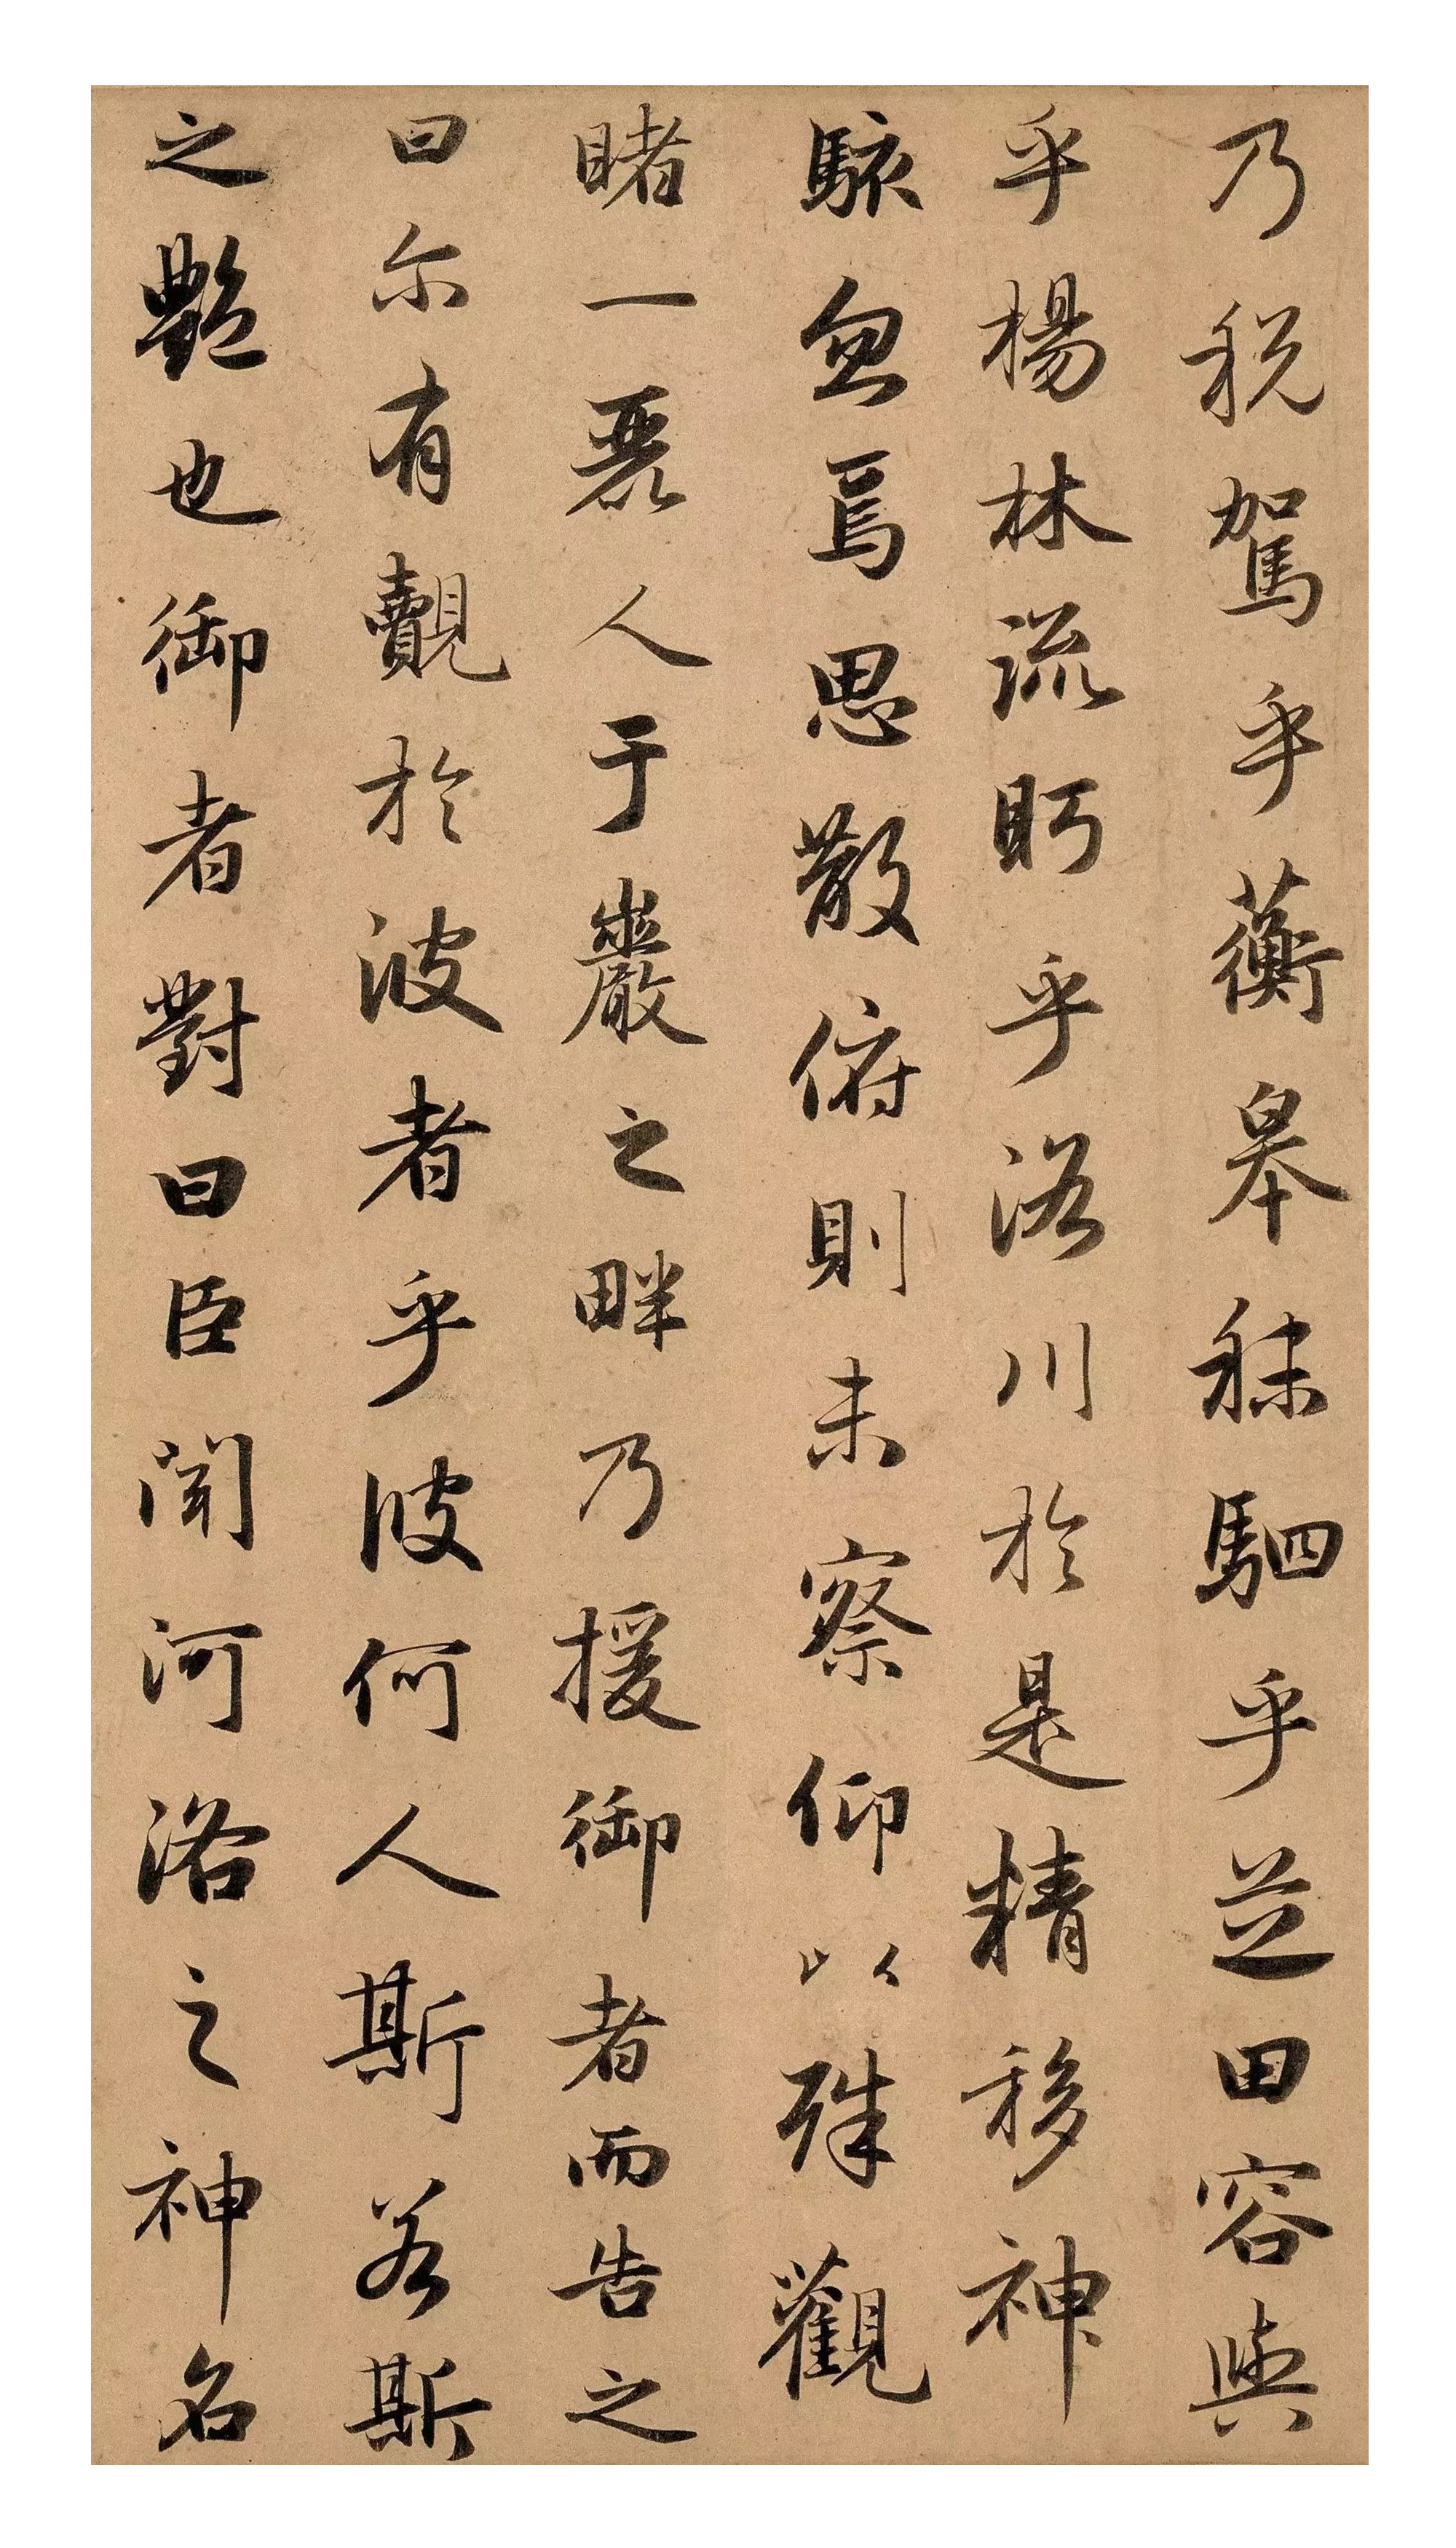 乃稅駕乎蘅皋秣駟乎芝田容與
乎楊林流眄乎洛川於是精移神
駭忽焉思散俯則未察仰以殊觀
睹一麗人于巖之畔乃援御者而告之
曰尔有覿於彼者乎彼何人斯若斯
之艷也御者對曰臣聞河洛之神名